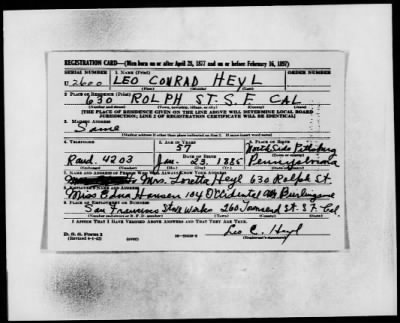 REGISTRATION CARD—(Men born on or after April 28, 1877 and on or before February 16, 1897)
SERIAL NUMBER 1. NAME (Print) ORDER NUMBER
U 2600 LEO CONRAD HEYL
(First) (Middle) (Last)
2. PLACE OF RESIDENCE (Print)
630 ROLPH ST. S.F. CAL
(Number and street) (Town, township, village, or city) (County) (State)
[THE PLACE OF RESIDENCE GIVEN ON THE LINE ABOVE WILL DETERMINE LOCAL BOARD
JURISDICTION; LINE 2 OF REGISTRATION CERTIFICATE WILL BE IDENTICAL]
3. MAILING ADDRESS
Same
[Mailing address if other than place indicated on line 2. If same insert word same]
4. TELEPHONE 5. AGE IN YEARS 6. PLACE OF BIRTH
57 North Side Pittsburg
DATE OF BIRTH
Rand. 4203 Jan. 23. 1885 Pennsylvania
7. NAME AND ADDRESS OF PERSON WHO WILL ALWAYS KNOW YOUR ADDRESS
Mrs. Loretta Heyl 630 Rolph St.
8. EMPLOYER'S NAME AND ADDRESS
Miss Edna Hansen 104 Occidental Burlingame
9. PLACE OF EMPLOYMENT OR BUSINESS
San Francisco Stove Works 260 Townsend St. S.F. Cal.
I AFFIRM THAT I HAVE VERIFIED ABOVE ANSWERS AND THAT THEY ARE TRUE.
D. S. S. Form 1
(Revised 4-1-42)
Leo C. Heyl
(Registrant's signature)